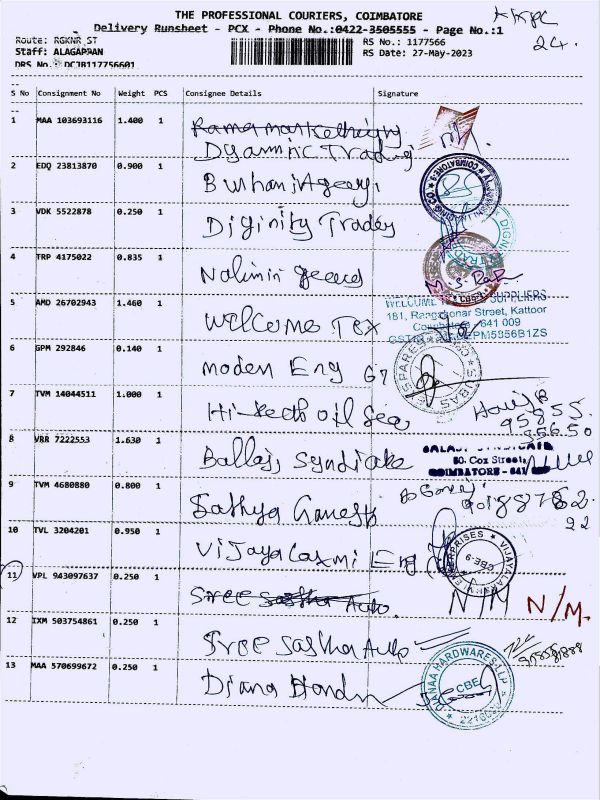 THE PROFESSIONAL COURIERS, COIMBATORE
Delivery Runsheet - PCX - Phone No.:0422-3505555 - Page No.:1
24.
Route: RGKNR_ST
RS No.: 1177566
Staff: ALAGAPPAN
RS Date: 27-May-2023
DRS No.: DCJB117756601
S No Consignment No Weight PCS Consignee Details Signature
1 MAA 103693116 1.400 1
2 EDQ 23813870 0.900 1 Burhani Agency
3 VDK 5522878 0.250 1 Diginity Trades
4 TRP 4175022 0.835 1
5 AMD 26702943 1.460 1 Welcome Tex
WELCOME SUPPLIERS
181, Rangakonar Street, Kattoor
Coimbatore - 641 009
6 GPM 292846 0.140 1 Moden Eng
7 TVM 14044511 1.000 1 Hi-tech oil Sea
95855
85650
8 VRR 7222553 1.630 1 Ballaji Syndicate
80. Cox Street,
COIMBATORE - 641
9 TVM 4680880 0.800 1 Sathya Ganesh
22
10 TVL 3204201 0.950 1 Vijaya Laxmi Eng
11 VPL 943097637 0.250 1 Sree Sastha Auto. N/M N/M.
12 IXM 503754861 0.250 1 Sree Sastha Auto
13 MAA 570699672 0.250 1 Diana Hardw
DIANAA HARDWARES LLP
CBE